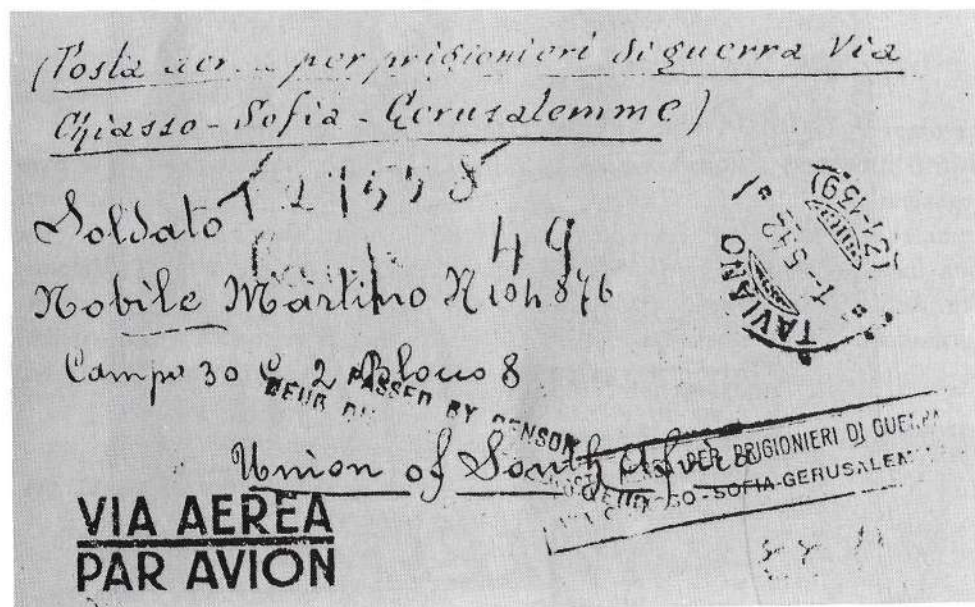 (Posta aer... per prigionieri di guerra Via
Chiasso - Sofia - Gerusalemme)
Soldato
49
Nobile Martino N 104876
Campo 30 C. 2 Blocco 8
PASSED BY CENSOR
DEUR
Union of South Africa
TAVIANO
(21-159)
PER PRIGIONIERI DI GUERRA
-SOFIA-GERUSALEM
VIA AEREA
PAR AVION